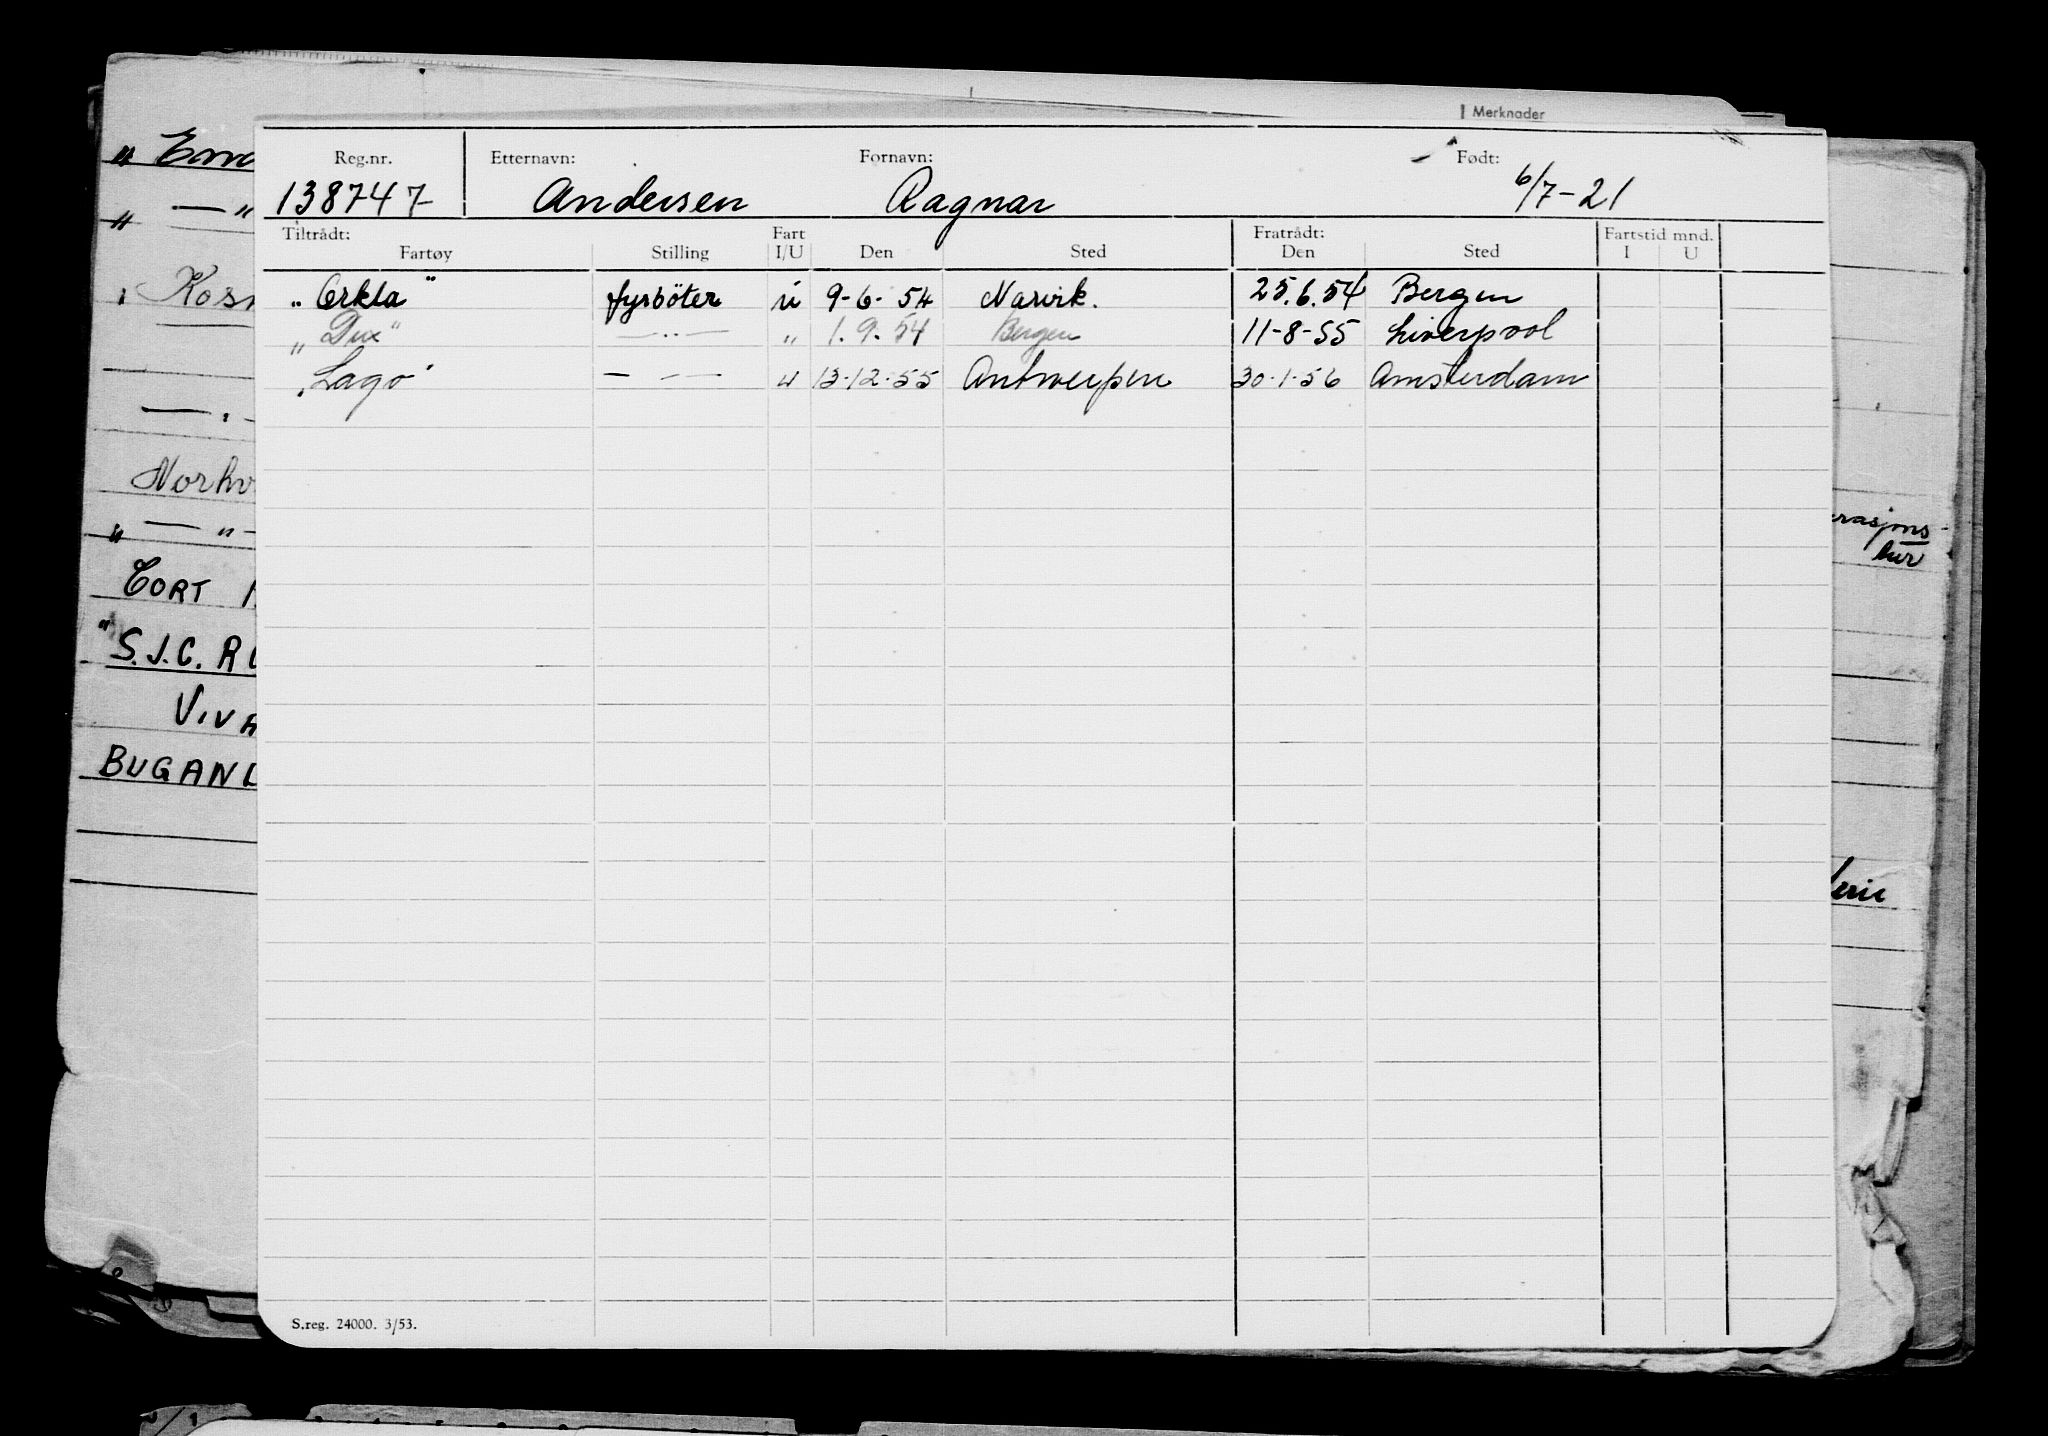 Merknader
Reg.nr. Etternavn: Fornavn: Født:
138747 Andersen Ragnar 6/7-21
Tiltrådt: Fart Fratrådt: Fartstid mnd.
Fartøy Stilling I/U Den Sted Den Sted I U
„Orkla" fyrböter u 9-6-54 Narvik. 25.6.54 Bergen
„Dux" —„— „ 1.9.54 Bergen 11-8-55 Liverpool
„Lago" —„— u 13-12-55 Antwerpen 30-1-56 Amsterdam
S.reg. 24000. 3/53.
CORT
"S.J.C.